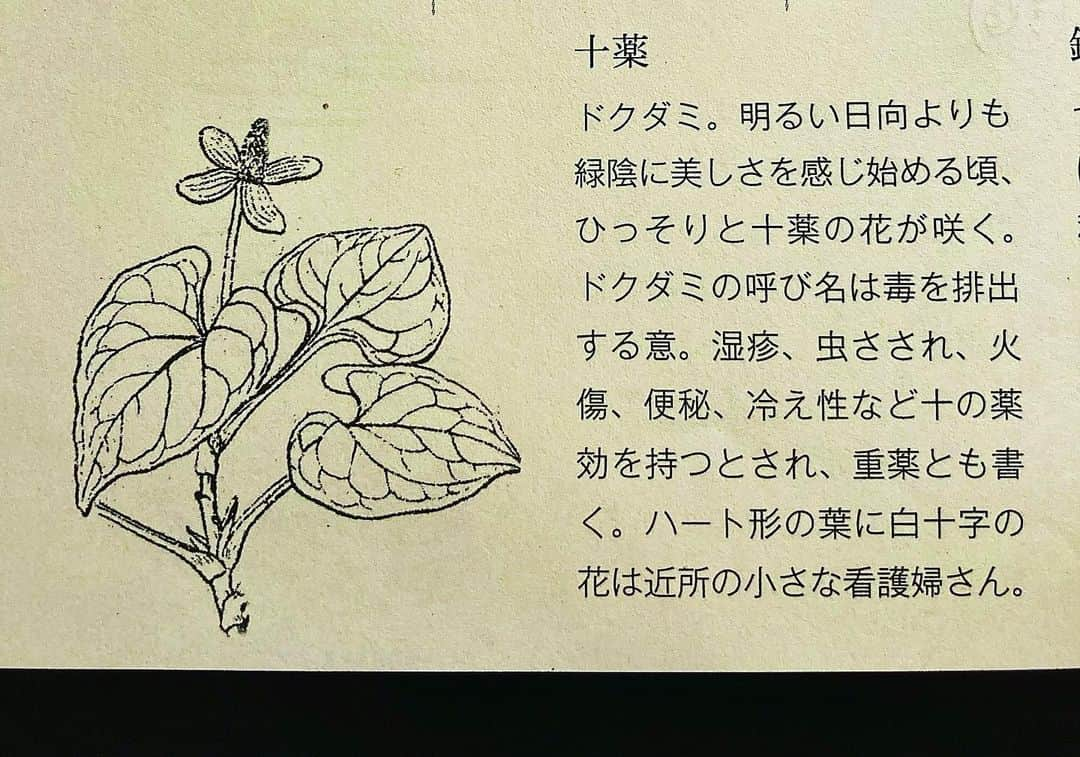 十薬
ドクダミ。明るい日向よりも
緑陰に美しさを感じ始める頃、
ひっそりと十薬の花が咲く。
ドクダミの呼び名は毒を排出
する意。湿疹、虫さされ、火
傷、便秘、冷え性など十の薬
効を持つとされ、重薬とも書
く。ハート形の葉に白十字の
花は近所の小さな看護婦さん。